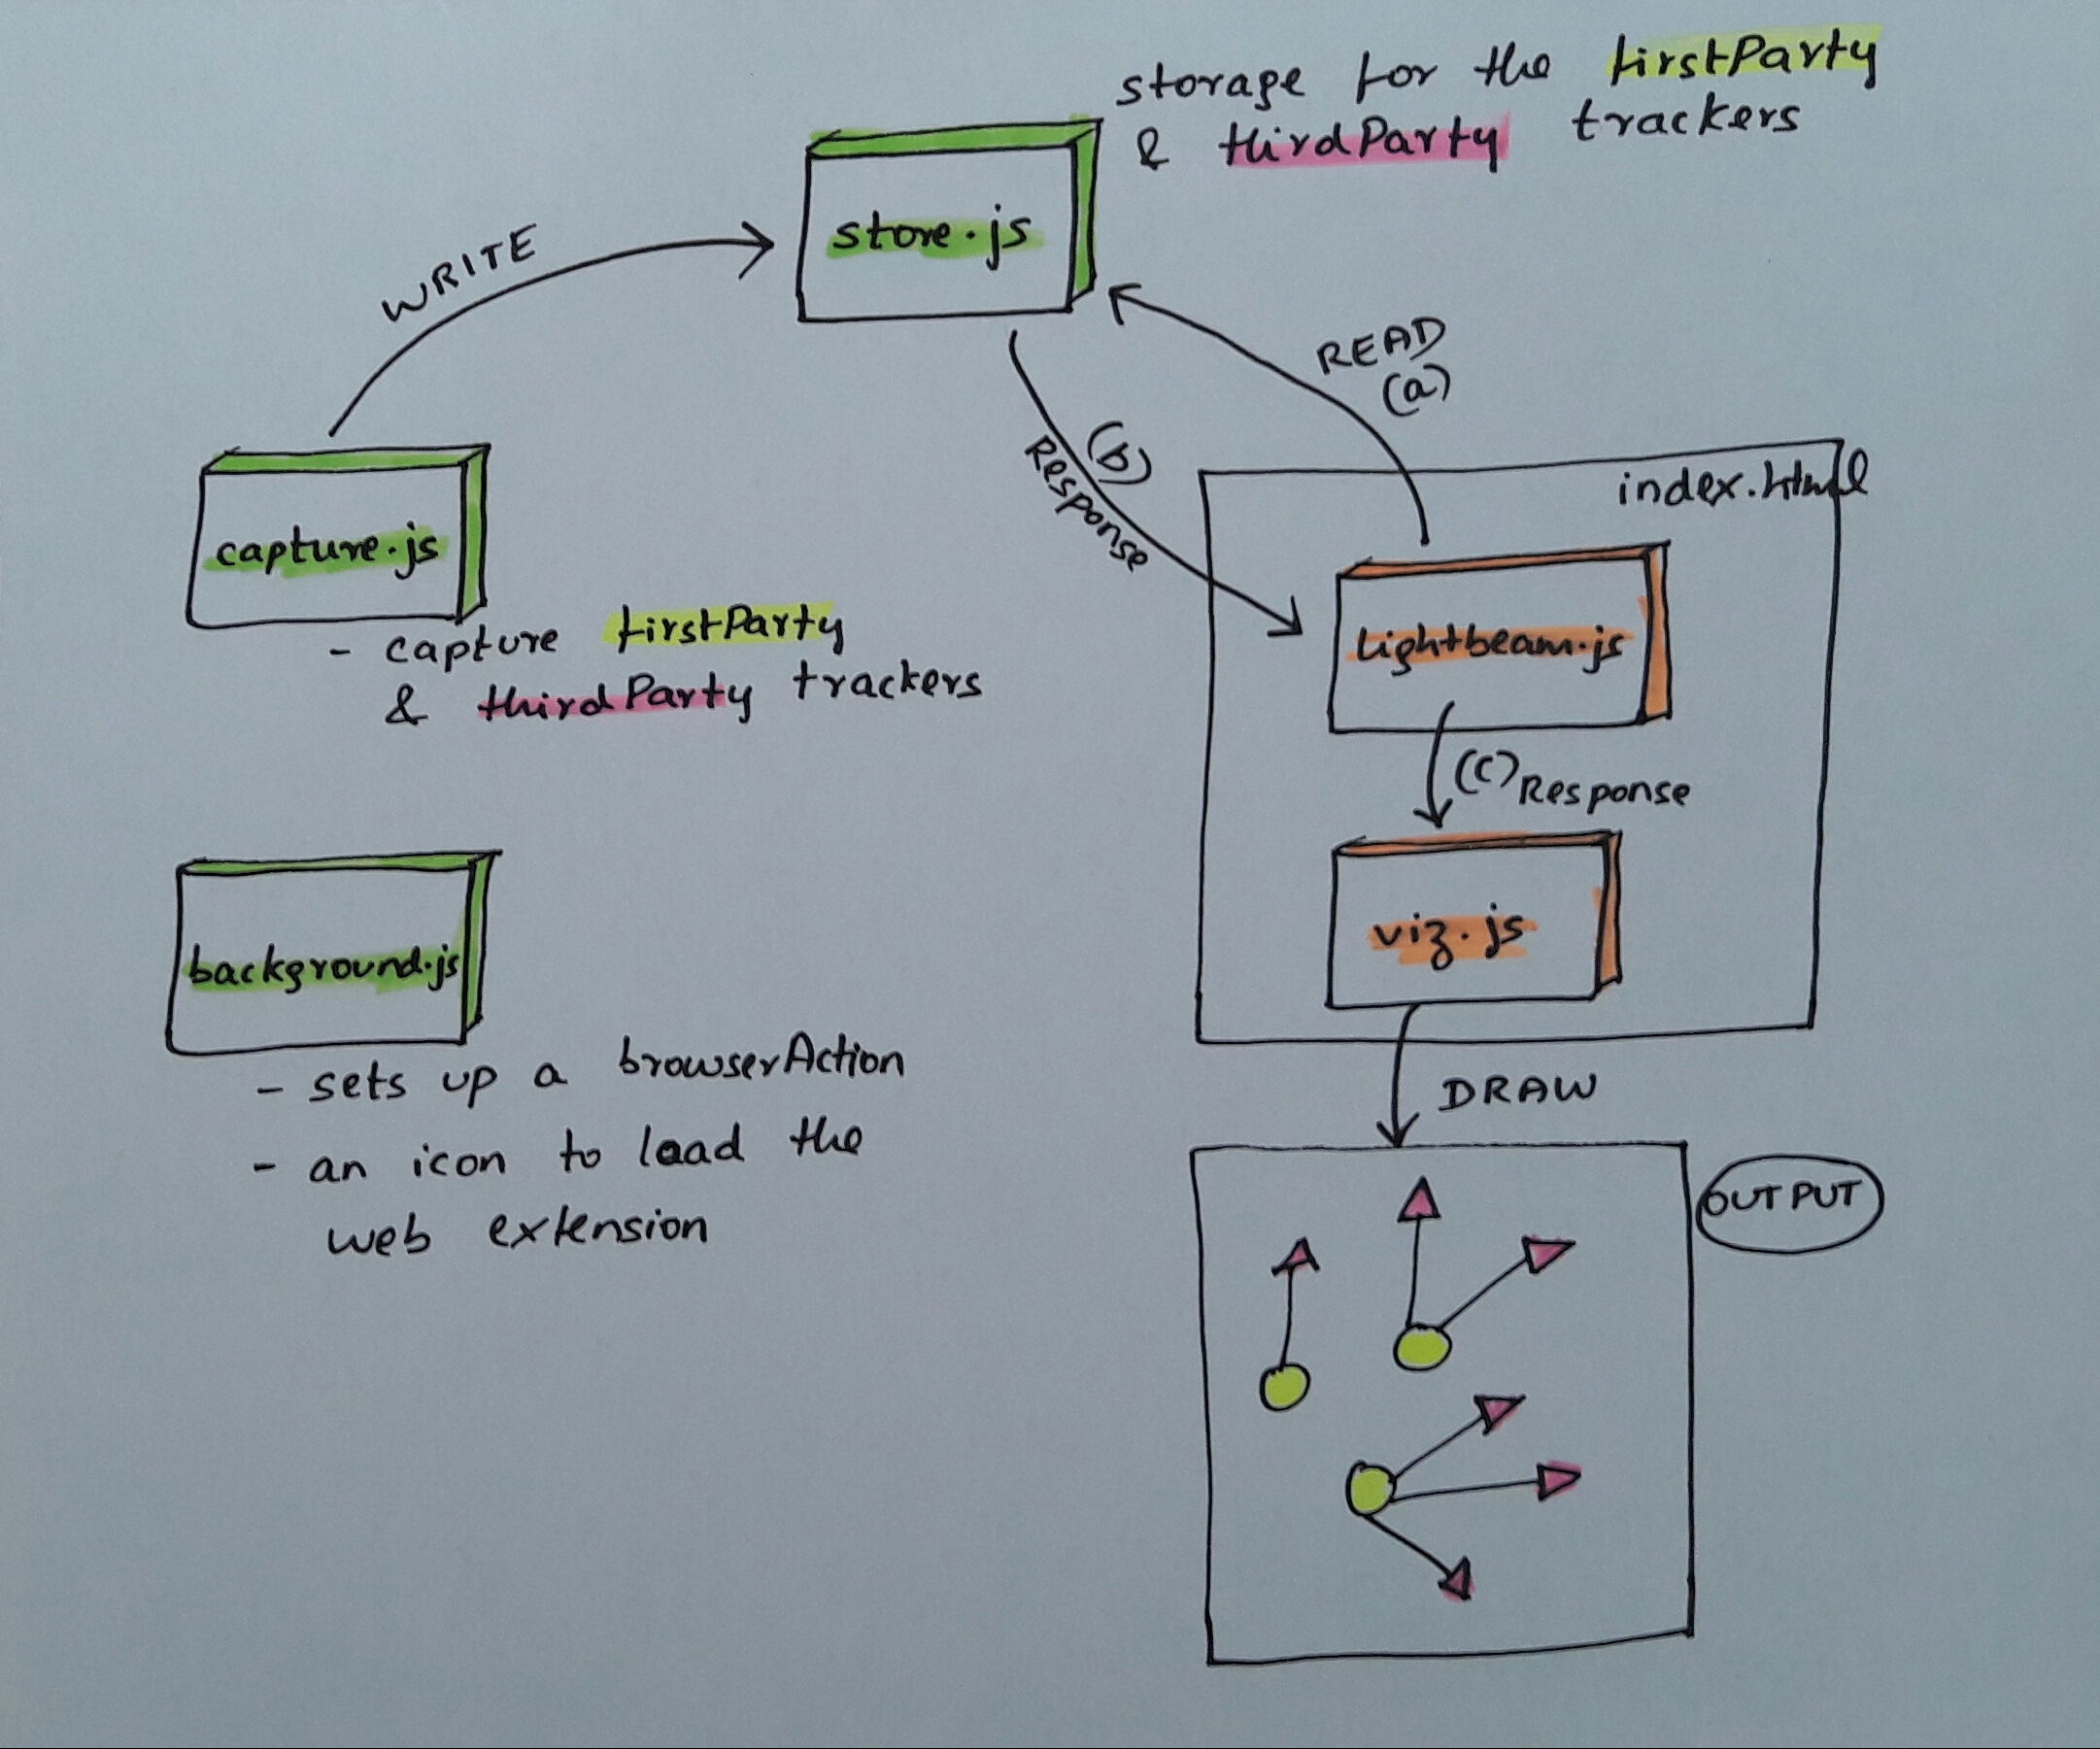 storage for the firstParty
& thirdParty trackers
store.js
WRITE
READ
(a)
(b)
Response
index.html
capture.js
- capture firstParty
& thirdParty trackers
lightbeam.js
(c) Response
viz.js
background.js
- sets up a browserAction
- an icon to load the
web extension
DRAW
OUTPUT